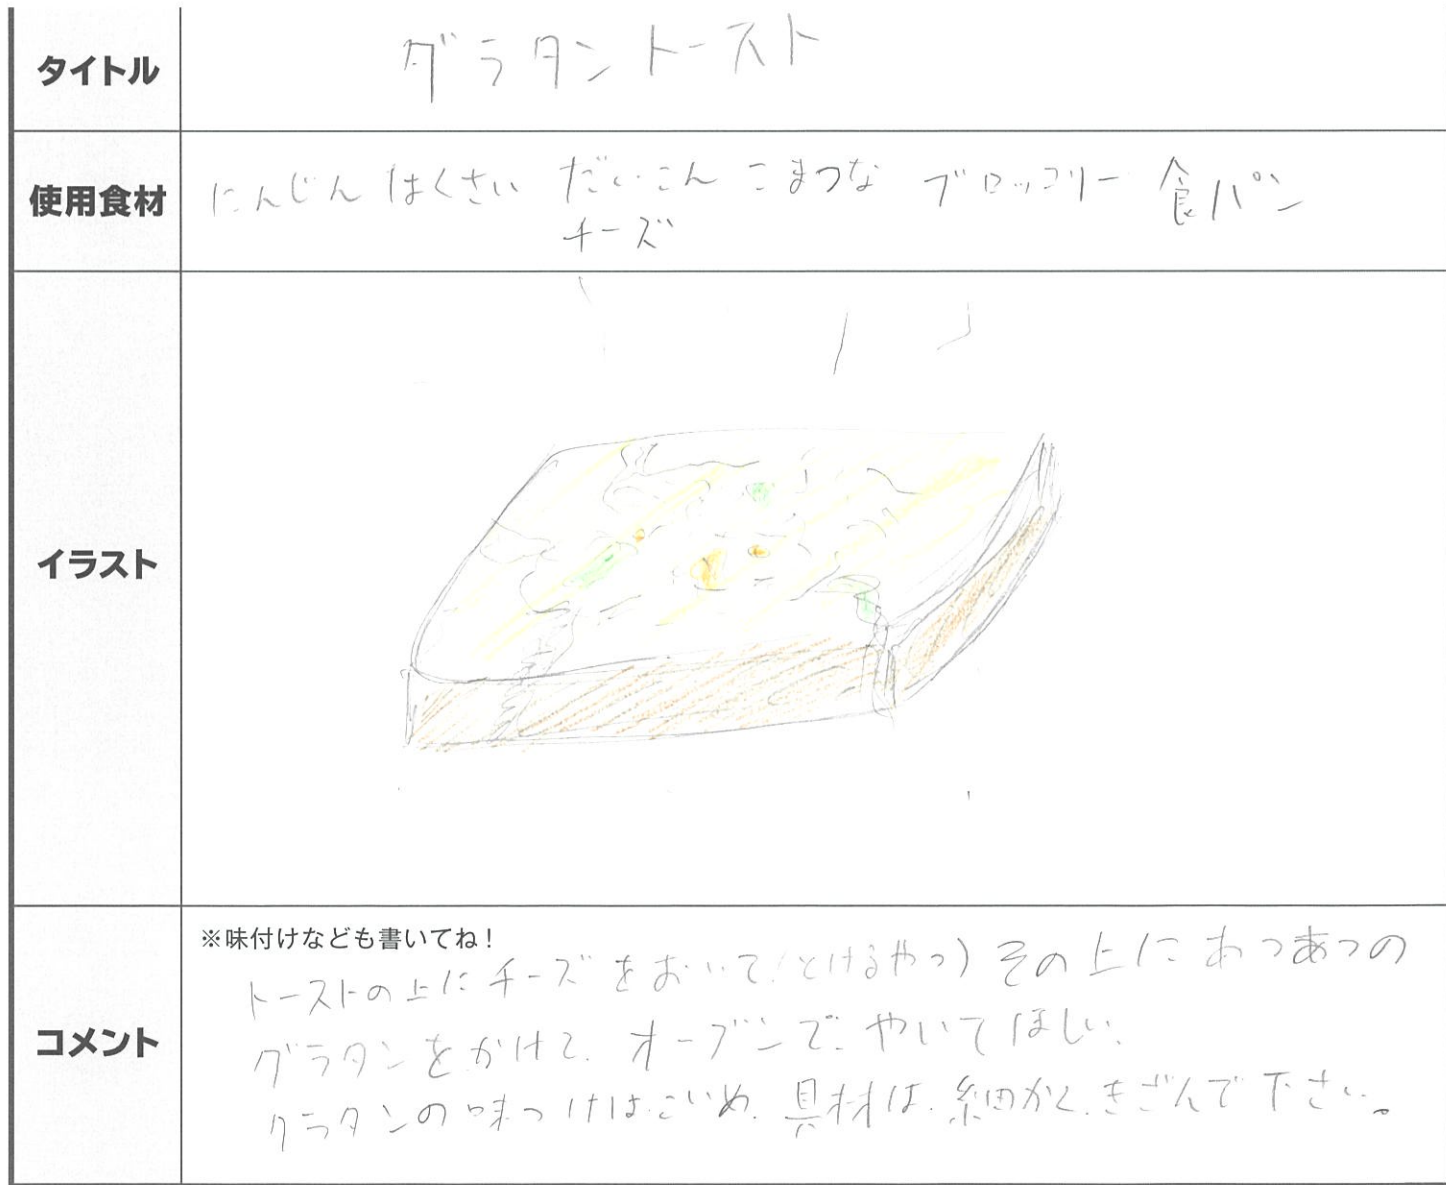 タイトル
グラタントースト
使用食材
にんじん はくさい だいこん こまつな ブロッコリー 食パン
チーズ
イラスト
コメント
※味付けなども書いてね!
トーストの上にチーズをおいて(とけるやつ)その上にあつあつの
グラタンをかけて、オーブンで やいてほしい、
グラタンの味つけはこいめ、具材は、細かく、きざんで下さい。